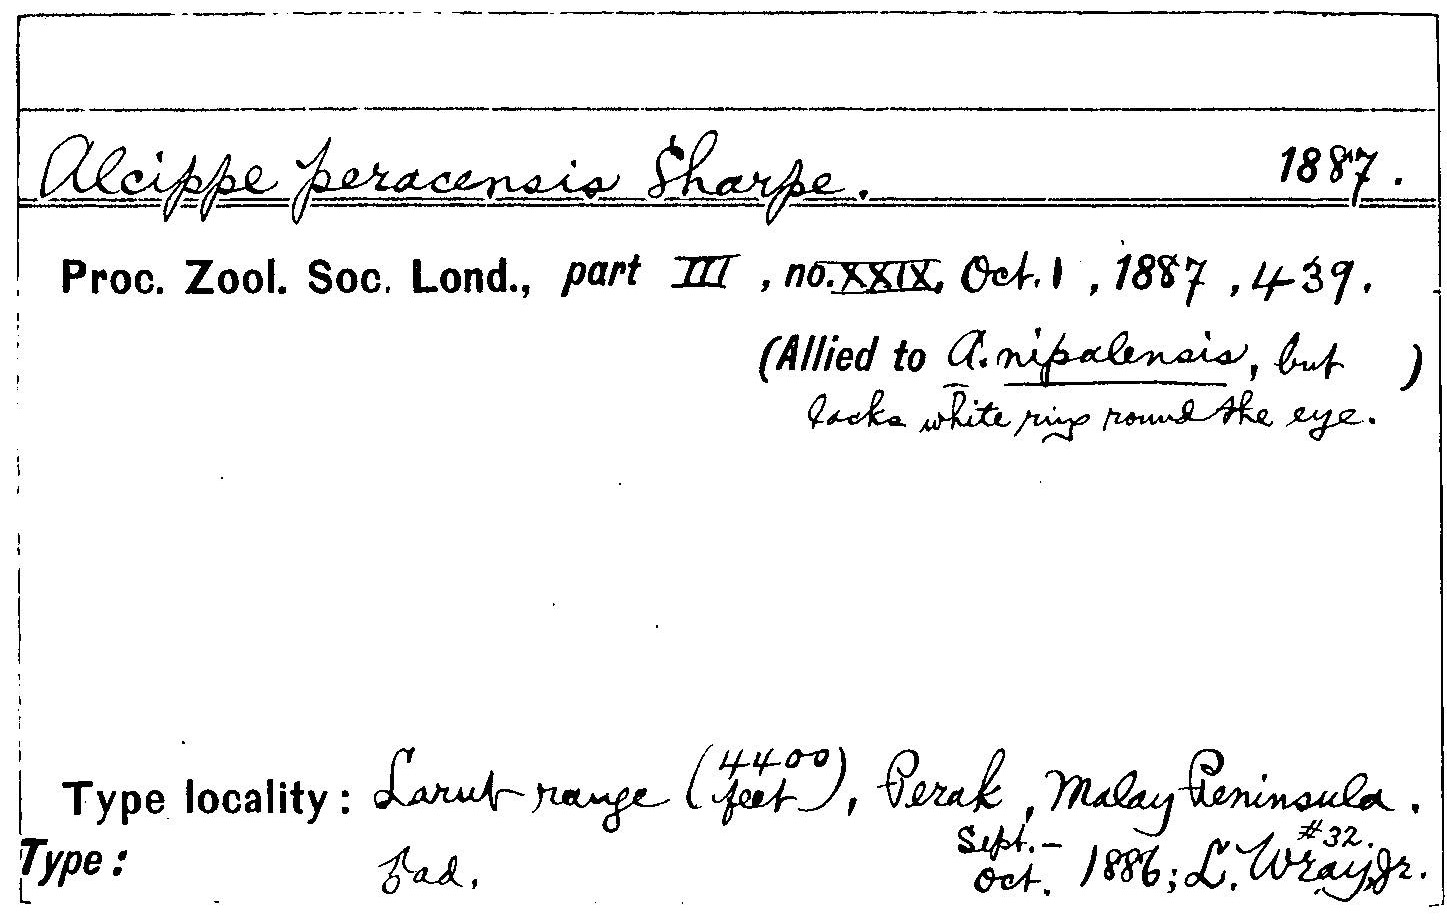 Alcippe peracensis Sharpe. 1887.
Proc. Zool. Soc. Lond., part III, no. XXIX, Oct. 1, 1887, 439.
(Allied to A. nipalensis, but )
lacks white ring round the eye.
Type locality: Larut range (4400 feet), Perak, Malay Peninsula.
Type: ad. Sept.-Oct. 1886; L. Wray, Jr. #32.